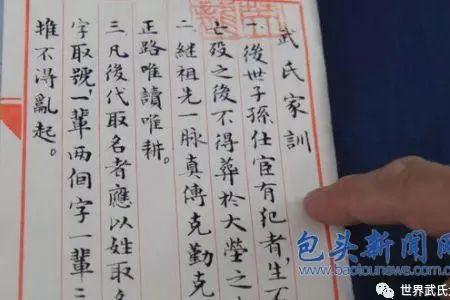 武氏家訓
一、後世子孫仕宦有犯者,生不
亡殁之後不得葬於大塋之
二繼祖先一脉真傳克勤克
正路唯讀唯耕。
三凡後代取名者應以姓取名
字取號,一輩两個字一輩三
推不得亂起。
包头新闻网
baotounews.c
世界武氏